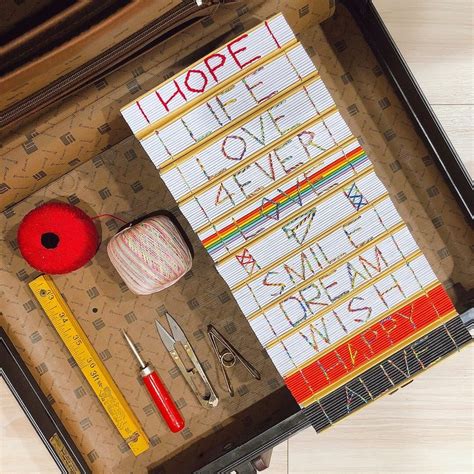 HOPE
LIFE
LOVE
4EVER
LOVE
SMILE
DREAM
WISH
HAPPY
ALIVE